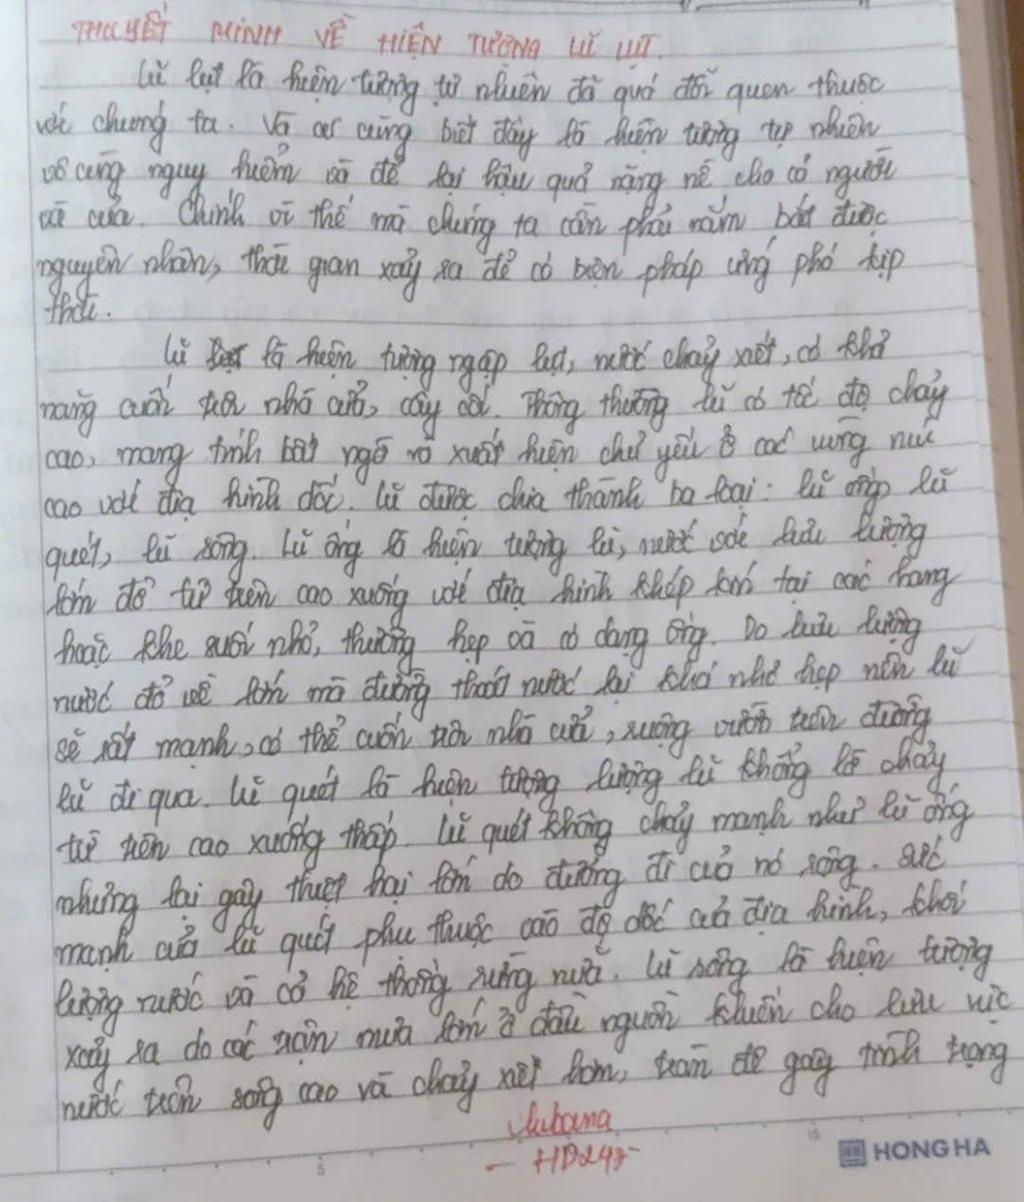 THUYẾT MINH VỀ HIỆN TƯỢNG LŨ LỤT.
Lũ lụt là hiện tượng tự nhiên đã quá đỗi quen thuộc
với chúng ta. Và ai cũng biết đây là hiện tượng tự nhiên
vô cùng nguy hiểm và để lại hậu quả nặng nề cho cả người
và của. Chính vì thế mà chúng ta cần phải nắm bắt được
nguyên nhân, thời gian xảy ra để có biện pháp ứng phó kịp
thời.
Lũ là hiện tượng ngập lụt, nước chảy xiết, có khả
năng cuốn trôi nhà cửa, cây cối. Thông thường lũ có tốc độ chảy
cao, mang tính bất ngờ và xuất hiện chủ yếu ở các vùng núi
cao với địa hình dốc. Lũ được chia thành ba loại: lũ ống, lũ
quét, lũ sông. Lũ ống là hiện tượng lũ, nước với lưu lượng
lớn đổ từ trên cao xuống với địa hình khép kín tại các hang
hoặc khe suối nhỏ, thường hẹp và có dạng ống. Do lưu lượng
nước đổ về lớn mà đường thoát nước lại khá nhỏ hẹp nên lũ
sẽ rất mạnh, có thể cuốn trôi nhà cửa, ruộng vườn trên đường
lũ đi qua. Lũ quét là hiện tượng lượng lũ khổng lồ chảy
từ trên cao xuống thấp. Lũ quét không chảy mạnh như lũ ống
nhưng lại gây thiệt hại lớn do đường đi của nó rộng. Sức
mạnh của lũ quét phụ thuộc vào độ dốc của địa hình, khối
lượng nước và cả hệ thống rừng nữa. Lũ sông là hiện tượng
xảy ra do các trận mưa lớn ở đầu nguồn khiến cho lưu vực
nước trên sông cao và chảy xiết hơn, tràn đê gây tình trạng
HD247
HONG HA
5
15